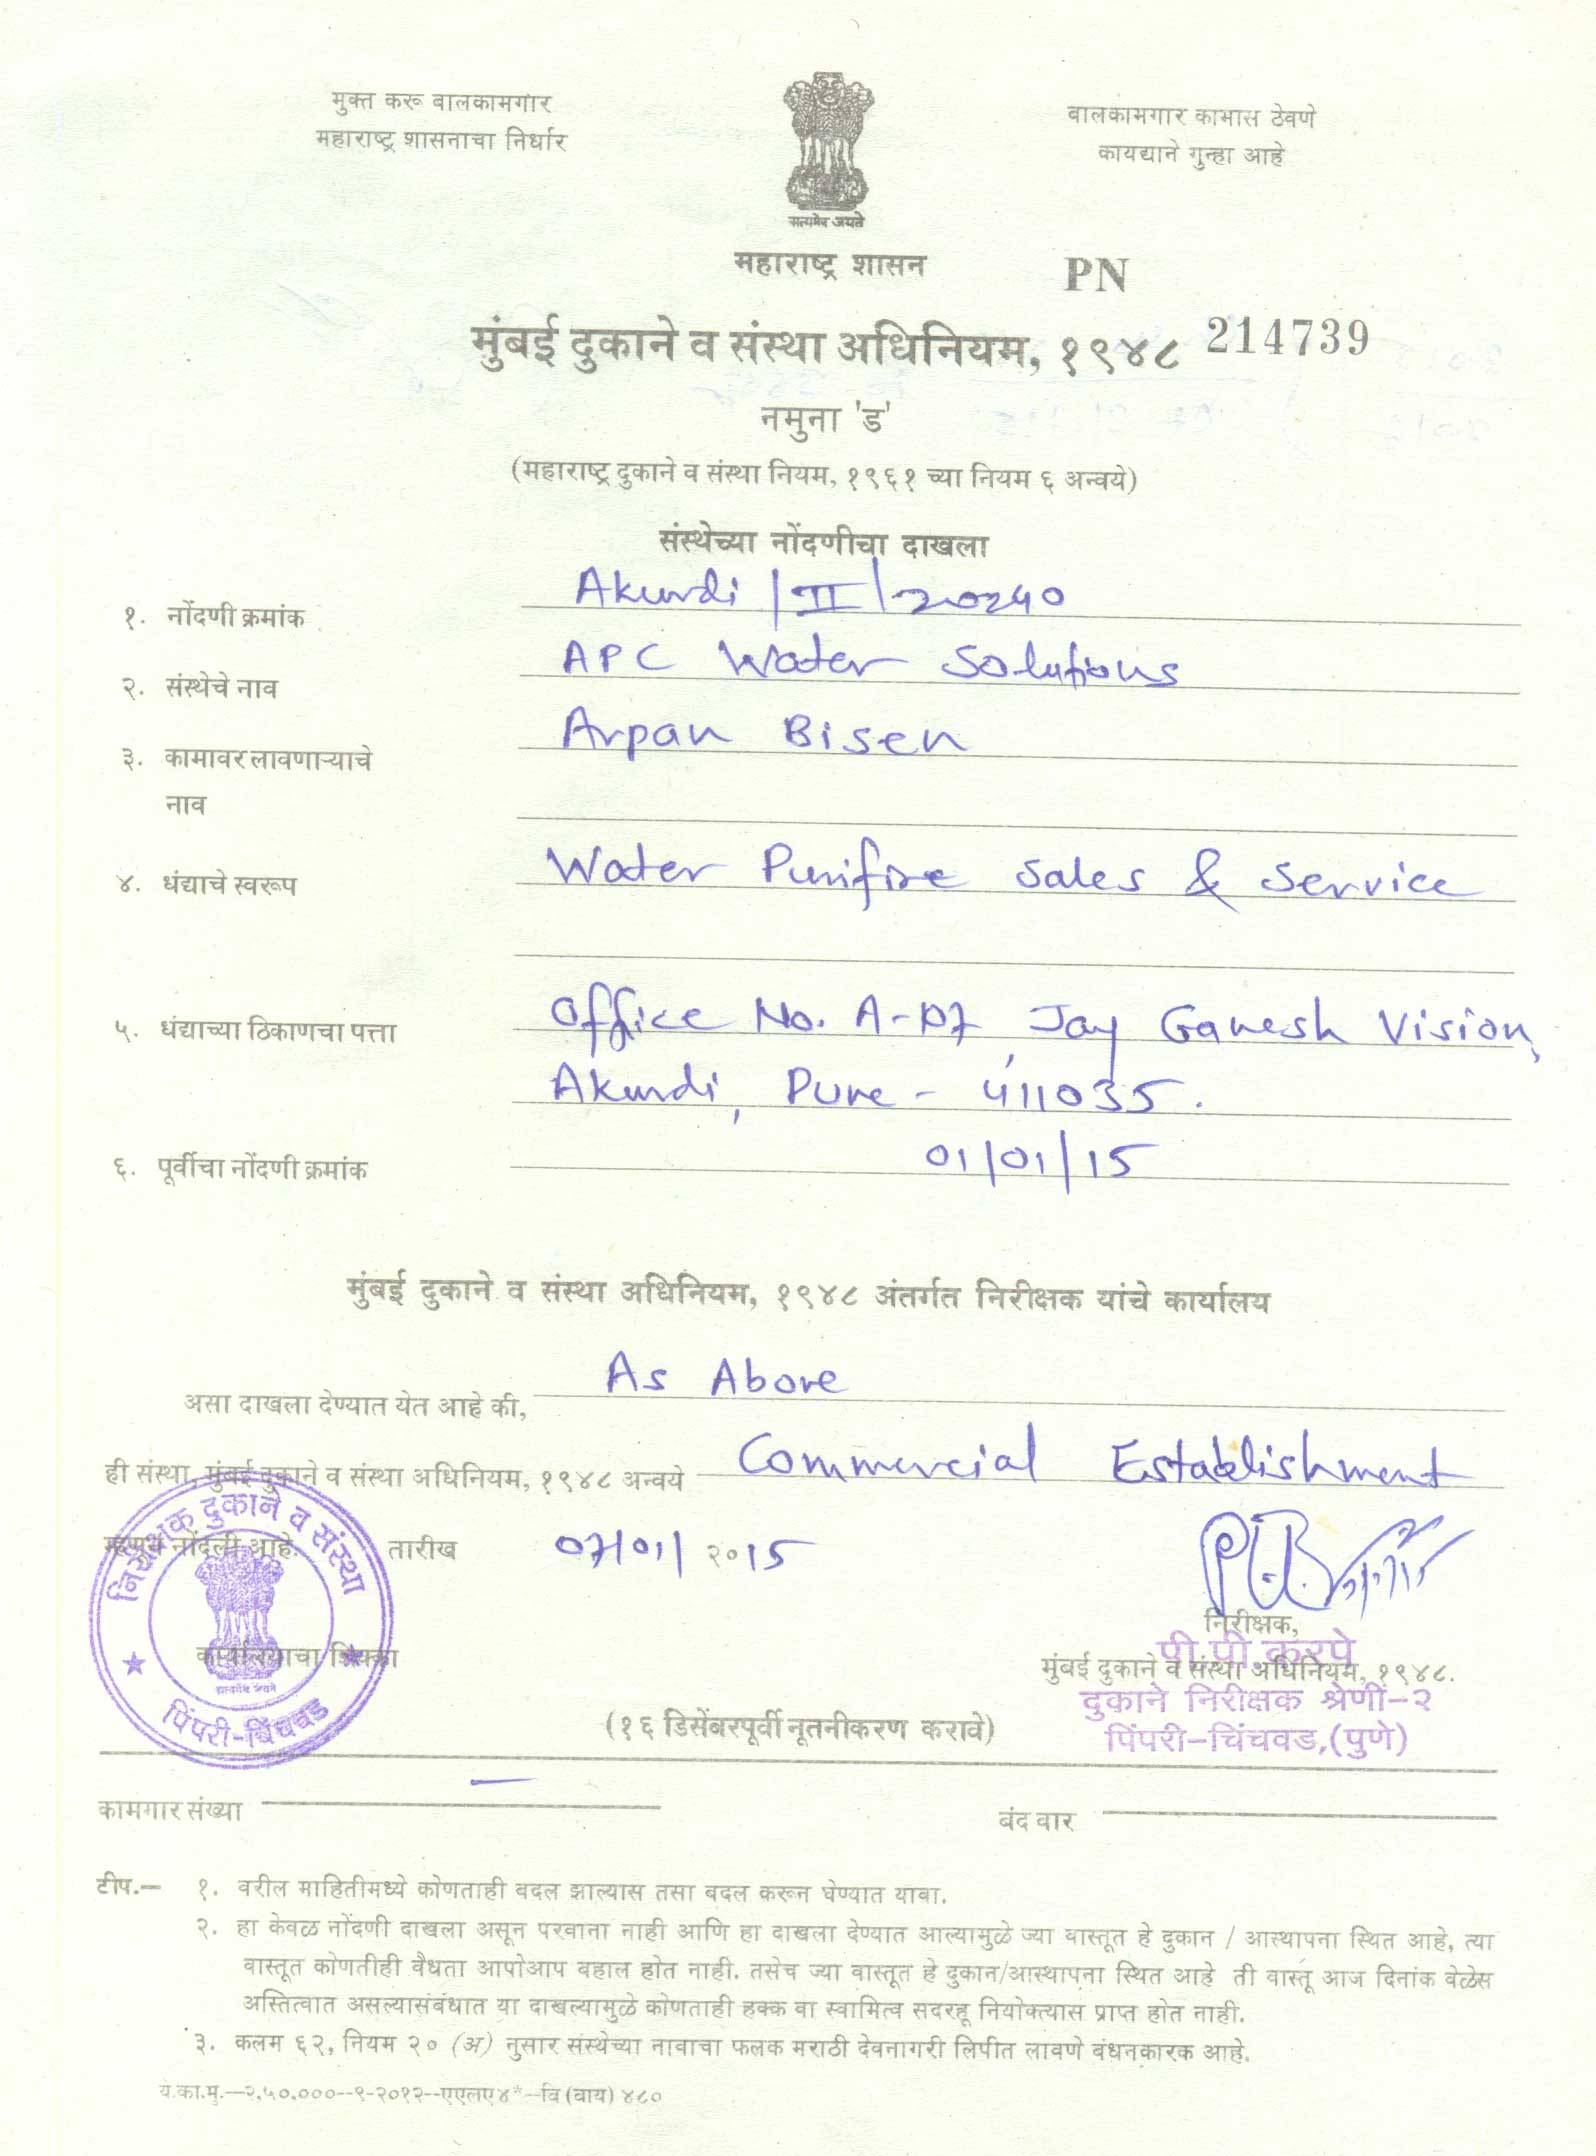 मुक्त करू बालकामगार
महाराष्ट्र शासनाचा निर्धार
बालकामगार कामास ठेवणे
कायद्याने गुन्हा आहे
सत्यमेव जयते
महाराष्ट्र शासन
PN
मुंबई दुकाने व संस्था अधिनियम, १९४८ 214739
नमुना 'ड'
(महाराष्ट्र दुकाने व संस्था नियम, १९६१ च्या नियम ६ अन्वये)
संस्थेच्या नोंदणीचा दाखला
१. नोंदणी क्रमांक Akurdi / II / 20240
२. संस्थेचे नाव APC Water Solutions
३. कामावर लावणाऱ्याचे Arpan Bisen
नाव
४. धंद्याचे स्वरूप Water Purifire Sales & Service
५. धंद्याच्या ठिकाणचा पत्ता Office No. A-107, Jay Ganesh Vision,
Akurdi, Pune - 411035.
६. पूर्वीचा नोंदणी क्रमांक 01/01/15
मुंबई दुकाने व संस्था अधिनियम, १९४८ अंतर्गत निरीक्षक यांचे कार्यालय
असा दाखला देण्यात येत आहे की, As Above
ही संस्था, मुंबई दुकाने व संस्था अधिनियम, १९४८ अन्वये Commercial Establishment
म्हणून नोंदली आहे. तारीख 07/01/ २०15
निरीक्षक दुकाने व संस्था
पिंपरी-चिंचवड
कार्यालयाचा शिक्का
निरीक्षक,
पी.पी.करपे
मुंबई दुकाने व संस्था अधिनियम, १९४८.
दुकाने निरीक्षक श्रेणी-२
पिंपरी-चिंचवड,(पुणे)
(१६ डिसेंबरपूर्वी नूतनीकरण करावे)
कामगार संख्या —
बंद वार
टीप.— १. वरील माहितीमध्ये कोणताही बदल झाल्यास तसा बदल करून घेण्यात यावा.
२. हा केवळ नोंदणी दाखला असून परवाना नाही आणि हा दाखला देण्यात आल्यामुळे ज्या वास्तूत हे दुकान / आस्थापना स्थित आहे, त्या
वास्तूत कोणतीही वैधता आपोआप बहाल होत नाही. तसेच ज्या वास्तूत हे दुकान/आस्थापना स्थित आहे ती वास्तू आज दिनांक वेळेस
अस्तित्वात असल्यासंबंधात या दाखल्यामुळे कोणताही हक्क वा स्वामित्व सदरहू नियोक्त्यास प्राप्त होत नाही.
३. कलम ६२, नियम २० (अ) नुसार संस्थेच्या नावाचा फलक मराठी देवनागरी लिपीत लावणे बंधनकारक आहे.
य.का.मु.—२,५०,०००--९-२०१२--एएलए४*--वि (वाय) ४८०